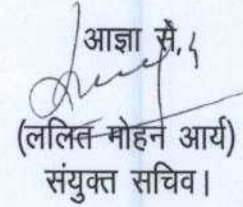 आज्ञा से,
(ललित मोहन आर्य)
संयुक्त सचिव।